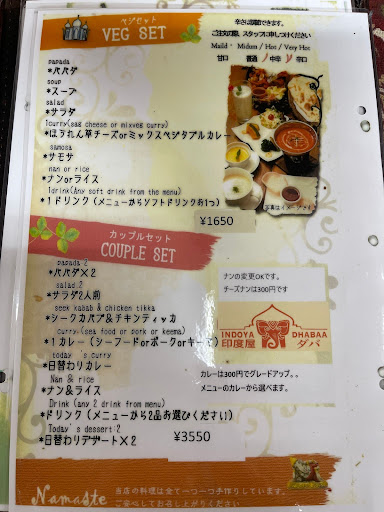 ベジセット
VEG SET
papada
*パパダ
soup
*スープ
salad
*サラダ
1curry(sag cheese or mixveg curry)
*ほうれん草チーズorミックスベジタブルカレー
samosa
*サモサ
nan or rice
*ナンorライス
1drink(Any soft drink from the menu)
*1ドリンク(メニューからソフトドリンクお1つ)
¥1650
辛さは調節できます。
ご注文の際、スタッフに申しつけください
Maild・ Midum / Hot / Very Hot
甘口 普通 中辛 辛口
写真はイメージ
カップルセット
COUPLE SET
papada 2
*パパダ×2
salad 2
*サラダ2人前
seek kabab & chicken tikka
*シークカバブ&チキンティッカ
curry(sea food or pork or keema)
*1カレー(シーフードorポークorキーマ)
today's curry
*日替わりカレー
Nan & rice
*ナン&ライス
Drink (any 2 drink from menu)
*ドリンク(メニューから2品お選びください)
Today's dessert 2
*日替わりデザート×2
¥3550
ナンの変更OKです。
チーズナンは300円です
INDOYA DHABAA
印度屋 ダバ
カレーは300円でグレードアップ。。
メニューのカレーから選べます。
Namaste
当店の料理は全て一つ一つ手作りしています。
ご安心してお召し上がりください